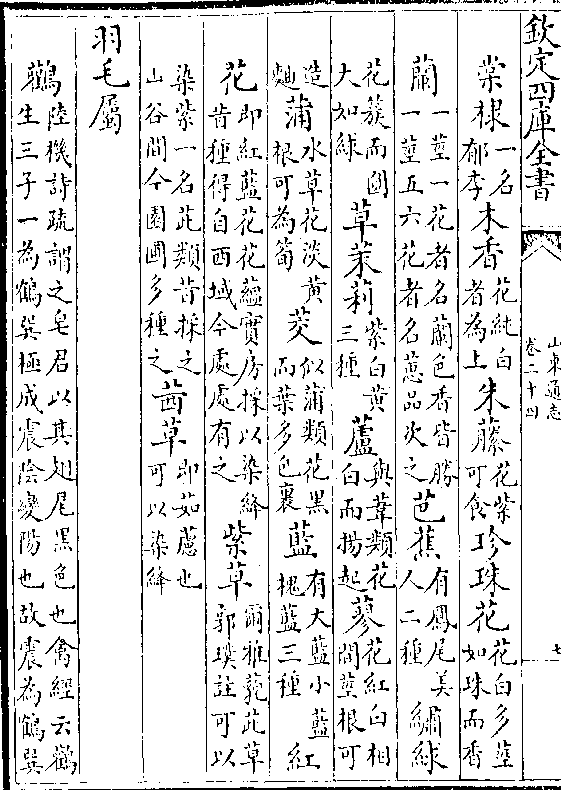 欽定四庫全書
山東通志
卷二十四
七
棠棣一名郁李木香花純白者為上朱藤花紫可食珍珠花花白多莖如珠而香
蘭一莖一花者名蘭色香皆勝一莖五六花者名蕙品次之芭蕉有鳳尾美人二種繡絿
花簇而圓大如絿草茉莉紫白黃三種蘆與葦類花白而揚起蓼花紅白相間莖根可
造麯蒲水草花淡黃根可為筍茭似蒲類花黑而葉多包裹藍有大藍小藍槐藍三種紅
花即紅藍花花蘊實房採以染絳昔種得自西域今處處有之紫草爾雅藐茈草郭璞註可以
染紫一名茈類昔採之山谷間今園圃多種之茜草即茹藘也可以染絳
羽毛屬
鸛陸機詩疏謂之皂君以其翅尾黑色也禽經云鸛生三子一為鶴巽極成震陰變陽也故震為鶴巽